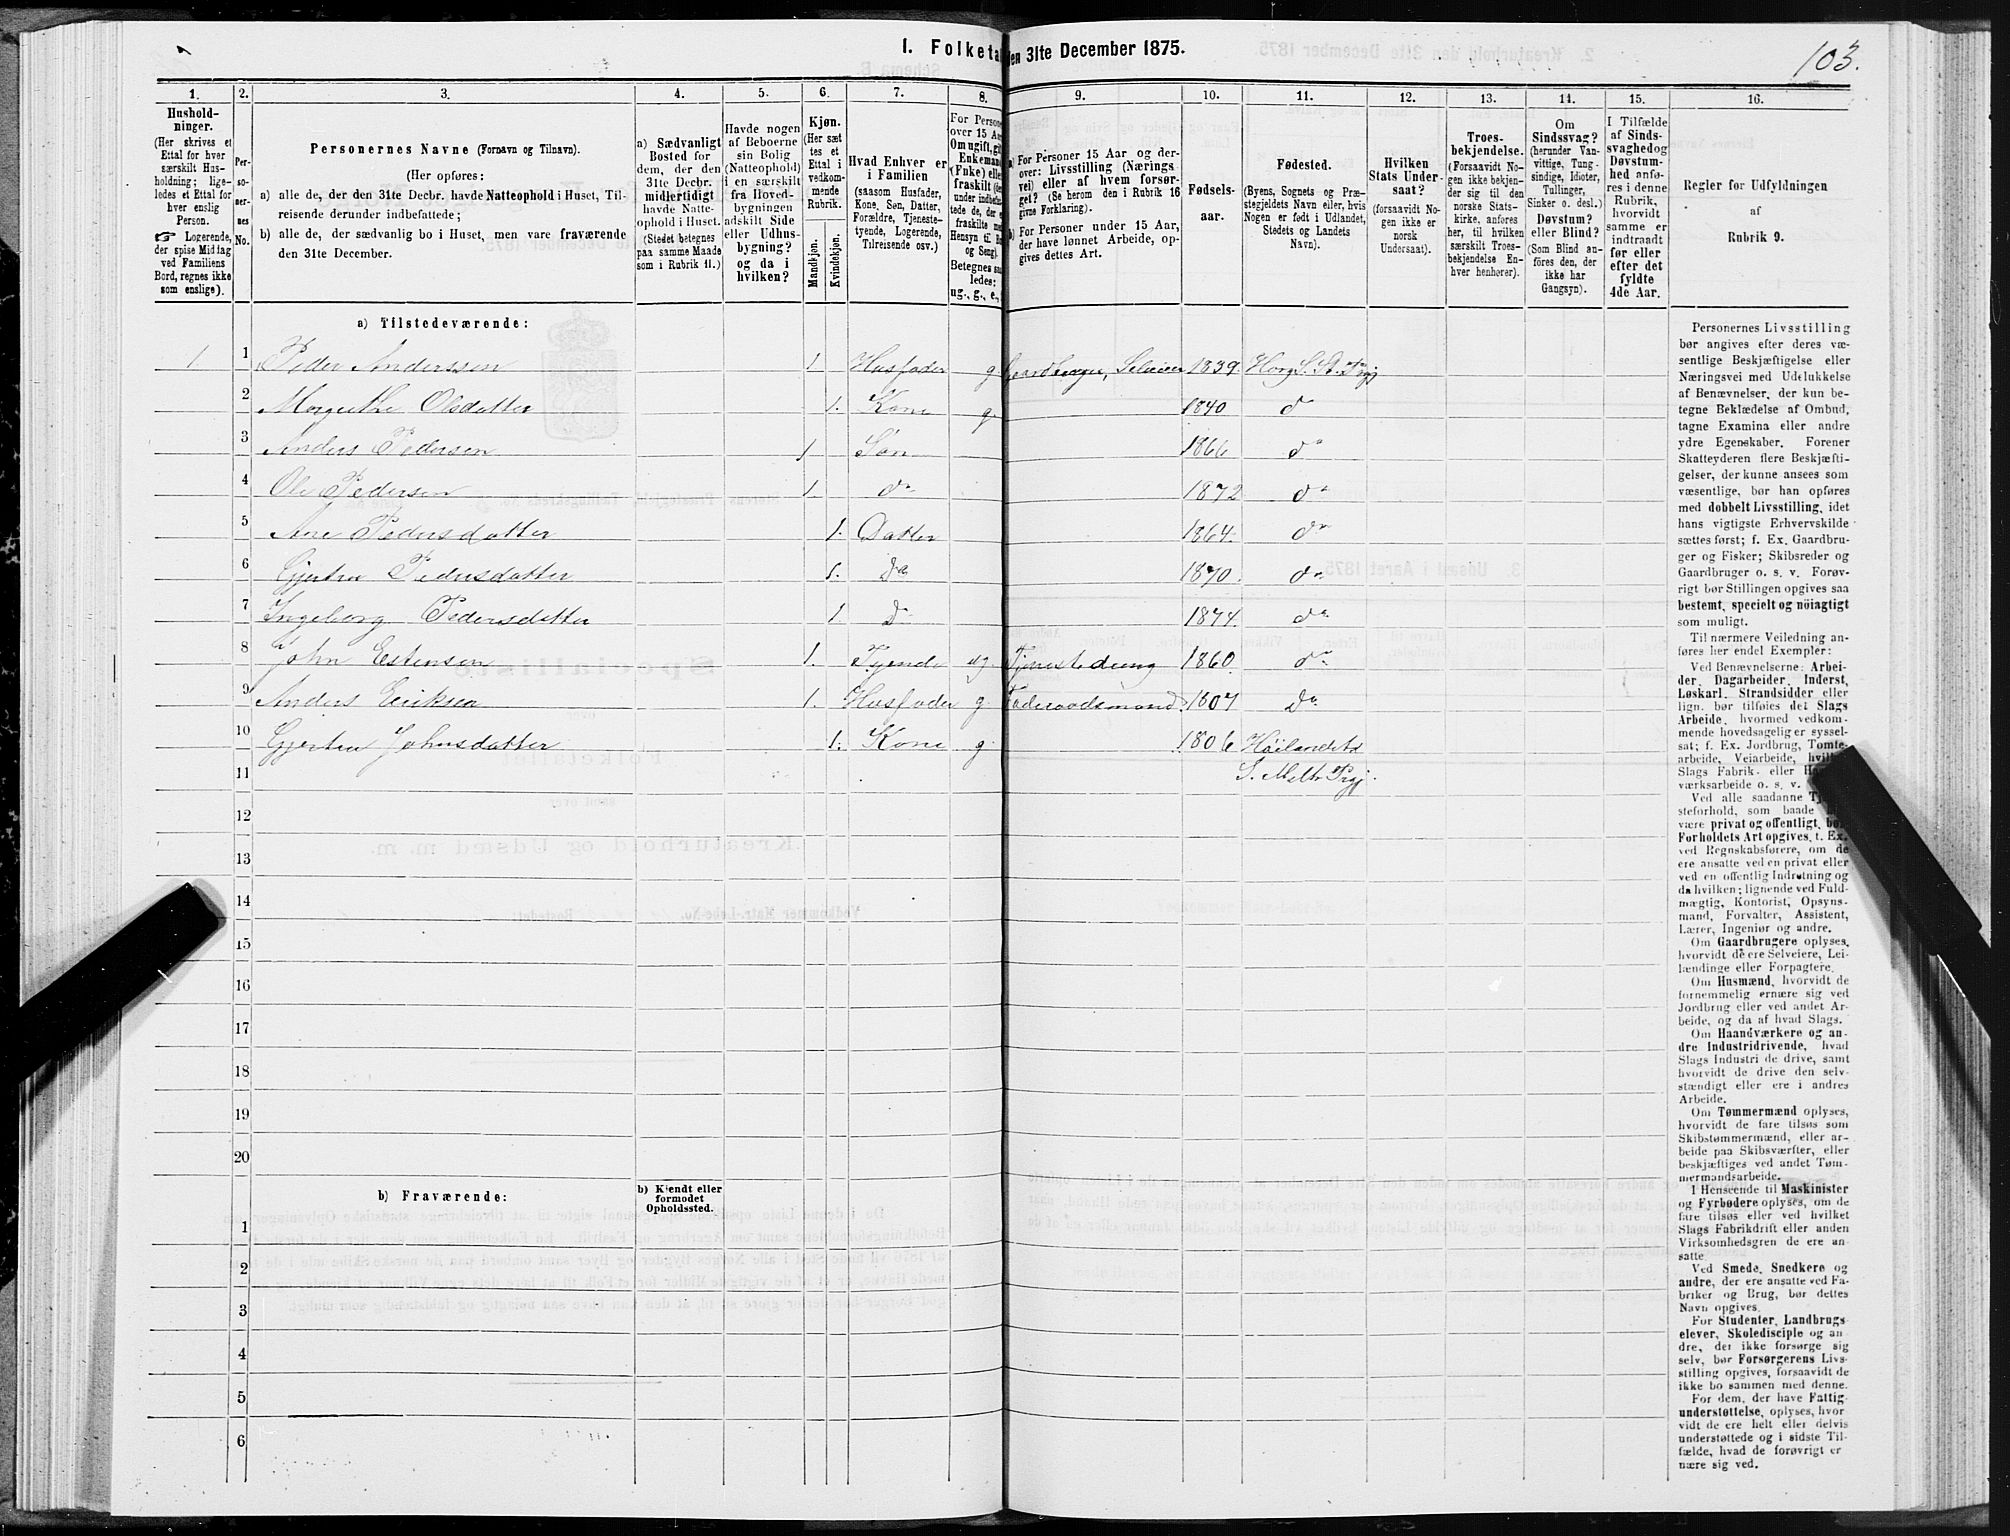 103.
I. Folketa
en 31te December 1875.
1.
2.
3.
4.
5.
6.
7.
8.
9.
10.
11.
12.
13.
14.
15.
16.
Hushold-
ninger.
(Her skrives et
Ettal for hver
særskilt Hus-
holdning; lige-
ledes et Ettal for
hver enslig
Person.
☞ Logerende,
der spise Middag
ved Familiens
Bord, regnes ikke
som enslige).
Per-
so-
ner-
nes
No.
Personernes Navne (Fornavn og Tilnavn).
(Her opføres:
a) alle de, der den 31te Decbr. havde Natteophold i Huset, Til-
reisende derunder indbefattede;
b) alle de, der sædvanlig bo i Huset, men vare fraværende
den 31te December.
a) Sædvanligt
Bosted for
dem, der den
31te Decbr.
midlertidigt
havde Natte-
ophold i Huset.
(Stedet betegnes
paa samme Maade
som i Rubrik 11.)
Havde nogen
af Beboerne
sin Bolig
(Natteophold)
i en særskilt
fra Hoved-
bygningen
adskilt Side
eller Udhus-
bygning?
og da i
hvilken?
Kjøn.
(Her sæt
tes et
Ettal i
vedkom-
mende
Rubrik.
Mandkjøn.
Kvindekjøn.
Hvad Enhver er
i Familien
(saasom Husfader,
Kone, Søn, Datter,
Forældre, Tjeneste-
tyende, Logerende,
Tilreisende osv.)
For Persone
over 15 Aa
Om ugift, gif
Enkemand
(Fuke) elle
fraskilt (de
under indbefat-
tede de, der e
fraskilte me
Hensyn til Bo
og Seng).
Betegnes saa
ledes:
ug., g., e.,
a) For Personer 15 Aar og der-
over: Livsstilling (Nærings
vei) eller af hvem forsør-
get? (Se herom den i Rubrik 16
givne Forklaring).
b) For Personer under 15 Aar,
der have lønnet Arbeide, op-
gives dettes Art.
Fødsels-
aar.
Fødested.
(Byens, Sognets og Præ-
stegjeldets Navn eller, hvis
Nogen er født i Udlandet,
Stedets og Landets
Navn).
Hvilken
Stats Under
saat?
(forsaavidt No-
gen ikke er
norsk
Undersaat).
Troes-
bekjendelse.
(Forsaavidt No-
gen ikke bekjen-
der sig til den
norske Stats-
kirke, anføres
her, til hvilken
særskilt Troes-
bekjendelse En-
hver henhører).
Om
Sindssvag?
(herunder Van-
vittige, Tung-
sindige, Idioter,
Tullinger,
Sinker o. desl.)
Døvstum?
eller Blind?
(Som Blind an-
føres den, der
ikke har
Gangsyn).
I Tilfælde
af Sinds-
svaghed og
Døvstum-
hed anfø-
res i denne
Rubrik,
hvorvidt
samme er
indtraadt
før eller
efter det
fyldte
4de Aar.
Regler for Udfyldningen
af
Rubrik 9.
a) Tilstedeværende:
1. 1 Peder Anderssen 1. Husfader g. Gaardbruger, Selveier 1839. Horg S. St. Prgj
2 Margrethe Olsdatter 1. Kone g. 1840 do
3 Anders Pedersen 1 Søn 1866 do
4 Ole Pedersen 1. do 1872 do
5 Ane Pedersdatter 1. Datter 1864. do
6 Gjertru Pedersdatter 1. Do 1870. do
7 Ingeborg Pedersdatter 1 Do 1874. do
8 John Estensen 1. Tyende ug Tjenestedreng 1860. do
9 Anders Eriksen 1. Husfader g. Føderaadsmand. 1807 Do
10 Gjertru Johnsdatter 1. Kone g. 1806 Høilandets
S. Melh Prgj.
11
12
13
14
15
16
17
18
19
20
b) Fraværende:
b) Kjendt eller
formodet
Opholdssted.
1
2
3
4
5
6
Personernes Livsstilling
bør angives efter deres væ-
sentlige Beskjæftigelse eller
Næringsvei med Udelukkelse
af Benævnelser, der kun be-
tegne Beklædelse af Ombud,
tagne Examina eller andre
ydre Egenskaber. Forener
Skatteyderen flere Beskjæfti-
gelser, der kunne ansees som
væsentlige, bør han opføres
med dobbelt Livsstilling, idet
hans vigtigste Erhvervskilde
sættes først; f. Ex. Gaardbru-
ger og Fisker; Skibsreder og
Gaardbruger o. s. v. Forøv-
rigt bør Stillingen opgives saa
bestemt, specielt og nöiagtigt
som muligt.
Til nærmere Veiledning an-
føres her endel Exempler:
Ved Benævnelserne: Arbei-
der, Dagarbeider, Inderst,
Løskarl, Strandsidder eller
lign. bør tilføies det Slags
Arbeide, hvormed vedkom-
mende hovedsagelig er syssel-
sat; f. Ex. Jordbrug, Tomte-
arbeide, Veiarbeide,
Slags Fabrik- eller
værksarbeide o. s. v.
Ved alle saadanne
steforhold, som baade
være privat og offentligt,
Forholdets Art opgives, t. Ex.
ved Regnskabsførere, om de
ere ansatte ved en privat eller
ved en offentlig Indretning og
da hvilken; lignende ved Fuld-
mægtig, Kontorist, Opsyns-
mand, Forvalter, Assistent,
Lærer, Ingeniør og andre.
Om Gaardbrugere oplyses,
hvorvidt de ere Selveiere, Lei-
lændinge eller Forpagtere.
Om Husmænd, hvorvidt de
fornemmelig ernære sig ved
Jordbrug eller ved andet Ar-
beide, og da af hvad Slags.
Om Haandværkere og an-
dre Industridrivende, hvad
Slags Industri de drive, samt
hvorvidt de drive den selv-
stændigt eller ere i andres
Arbeide.
Om Tømmermænd oplyses,
hvorvidt de fare tilsøs som
Skibstømmermænd, eller ar-
beide paa Skibsværfter, eller
beskjæftiges ved andet Tøm-
mermandsarbeide.
I Henseende til Maskinister
og Fyrbødere oplyses, om de
fare tilsøs eller ved hvilket
Slags Fabrikdrift eller anden
Virksomhedsgren de ere an-
satte.
Ved Smede, Snedkere og
andre, der ere ansatte ved Fa-
briker og Brug, bør dettes
Navn opgives.
For Studenter, Landbrugs-
elever, Skoledisciple og an-
dre, der ikke forsørge sig
selv, bør Forsørgerens Livs-
stilling opgives, forsaavidt de
ikke bo sammen med denne.
For dem, der have Fattig-
understøttelse, oplyses, hvor-
vidt de ere helt eller delvis
understøttede og i sidste Til-
fælde, hvad de forøvrigt er
nære sig ved.